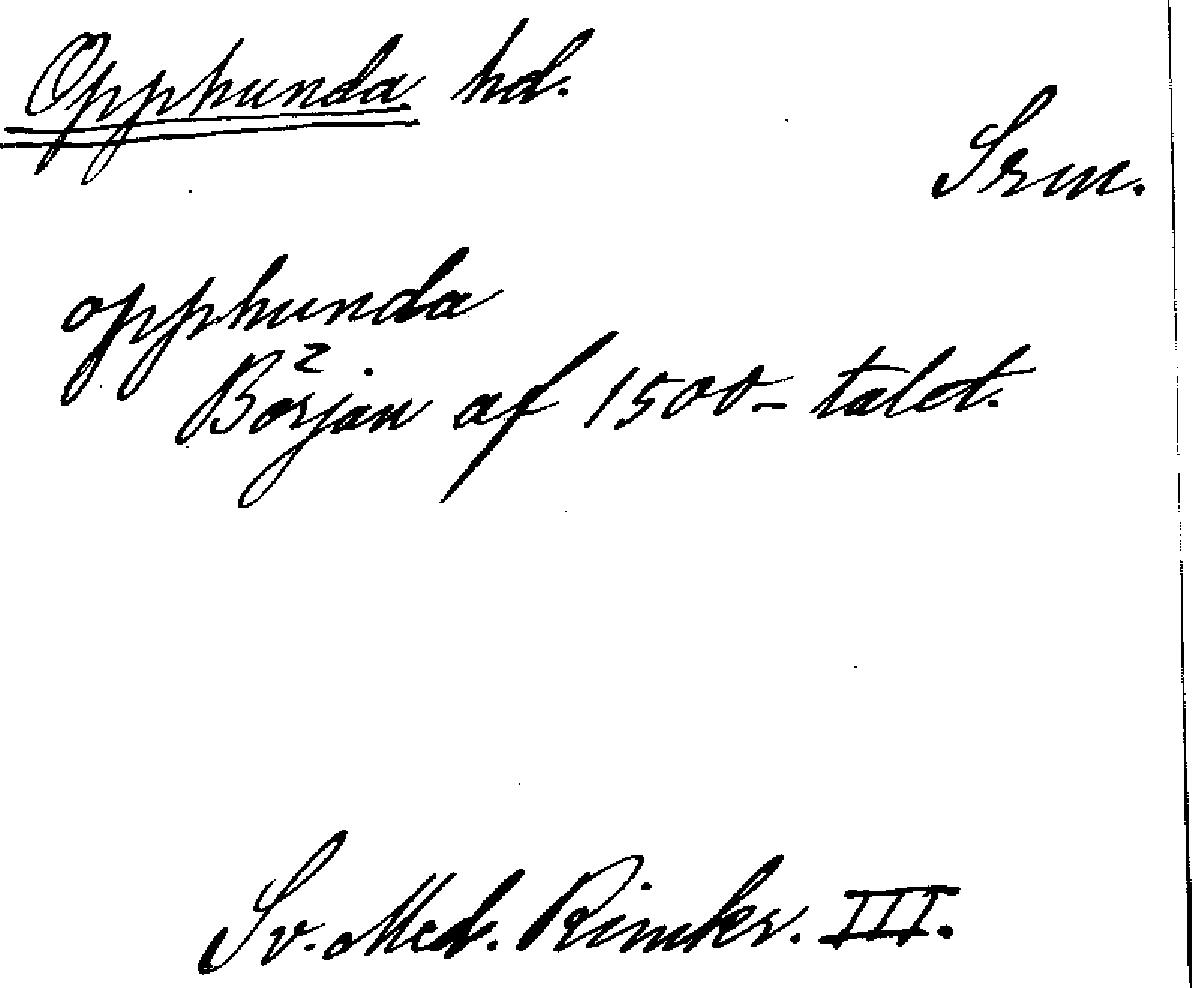 Opphunda hd.
Srm.
opphunda
Början af 1500-talet.
Sv. Med. Rimkr. III.